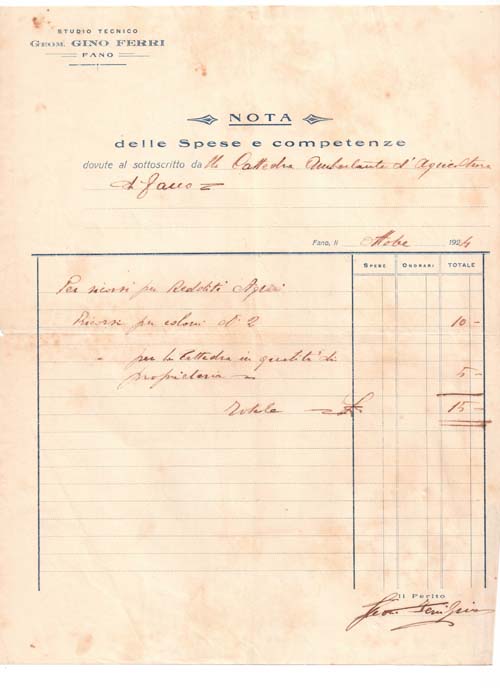 STUDIO TECNICO
GEOM. GINO FERRI
FANO
NOTA
delle Spese e competenze
dovute al sottoscritto da lla Cattedra Ambulante d'Agricoltura
di Fano =
Fano, li Ottobre 1924
SPESE ONORARI TOTALE
Per ricorsi per Redditi Agrari
Ricorsi per coloni N° 2 10 -
" per la Cattedra in qualità di
proprietaria 5 -
Totale £ 15 -
Il Perito
Geom. Ferri Gino